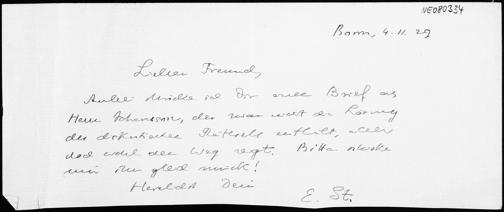 NE080334
Bonn, 4. 11. 29
Lieber Freund,
Anbei schicke ich Dir einen Brief an
Herrn Johansson, der zwar nicht die Lösung
des diskutierten Rätsels enthält, aber
doch wohl den Weg zeigt. Bitte schicke
mir ihn gleich zurück!
Herzlichst Dein
E. St.